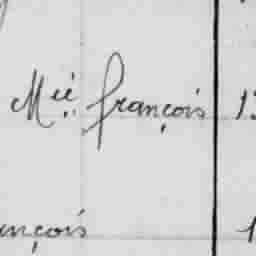 Mᵉⁱᵉ françois 1
ançois 1